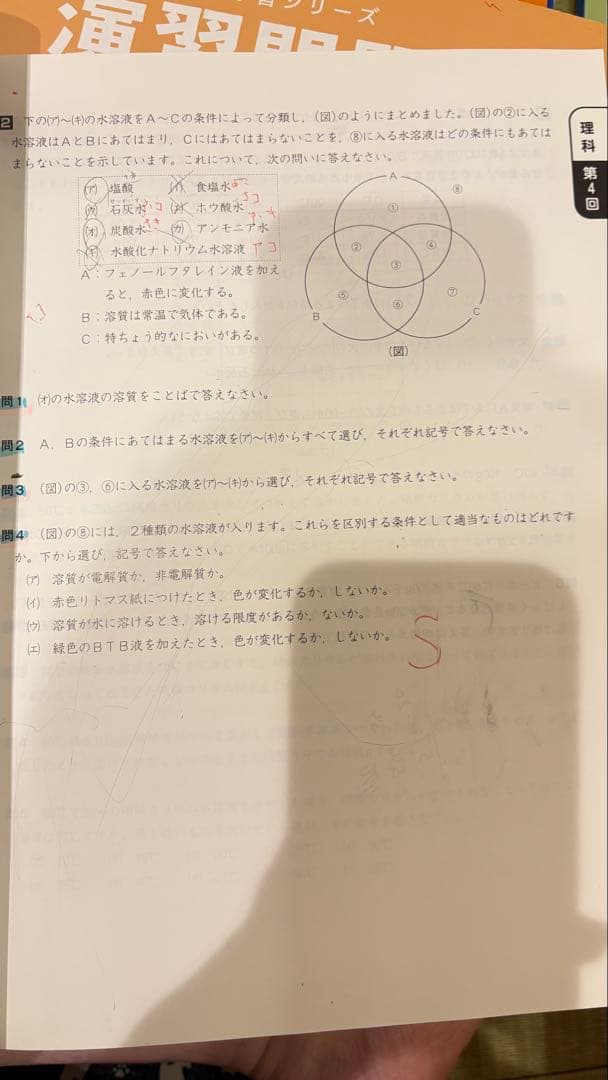 習シリーズ
演習問
2 下の(ア)～(キ)の水溶液をA～Cの条件によって分類し，(図)のようにまとめました。(図)の②に入る
水溶液はAとBにあてはまり，Cにはあてはまらないことを，⑧に入る水溶液はどの条件にもあては
まらないことを示しています。これについて，次の問いに答えなさい。
(ア) 塩酸 (イ) 食塩水
石灰水 ホウ酸水
(オ) 炭酸水 (カ) アンモニア水
(キ) 水酸化ナトリウム水溶液 アコ
A：フェノールフタレイン液を加え
ると，赤色に変化する。
B：溶質は常温で気体である。
C：特ちょう的なにおいがある。
A
⑧
①
② ④
③
⑤ ⑦
⑥
B C
(図)
理科 第4回
問1 (オ)の水溶液の溶質をことばで答えなさい。
問2 A，Bの条件にあてはまる水溶液を(ア)～(キ)からすべて選び，それぞれ記号で答えなさい。
問3 (図)の③，⑥に入る水溶液を(ア)～(キ)から選び，それぞれ記号で答えなさい。
問4 (図)の⑧には，2種類の水溶液が入ります。これらを区別する条件として適当なものはどれです
か。下から選び，記号で答えなさい。
(ア) 溶質が電解質か，非電解質か。
(イ) 赤色リトマス紙につけたとき，色が変化するか，しないか。
(ウ) 溶質が水に溶けるとき，溶ける限度があるか，ないか。
(エ) 緑色のBTB液を加えたとき，色が変化するか，しないか。
S